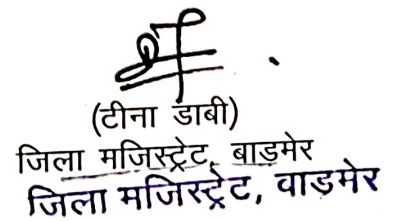 (टीना डाबी)
जिला मजिस्ट्रेट, बाड़मेर
जिला मजिस्ट्रेट, वाड़मेर